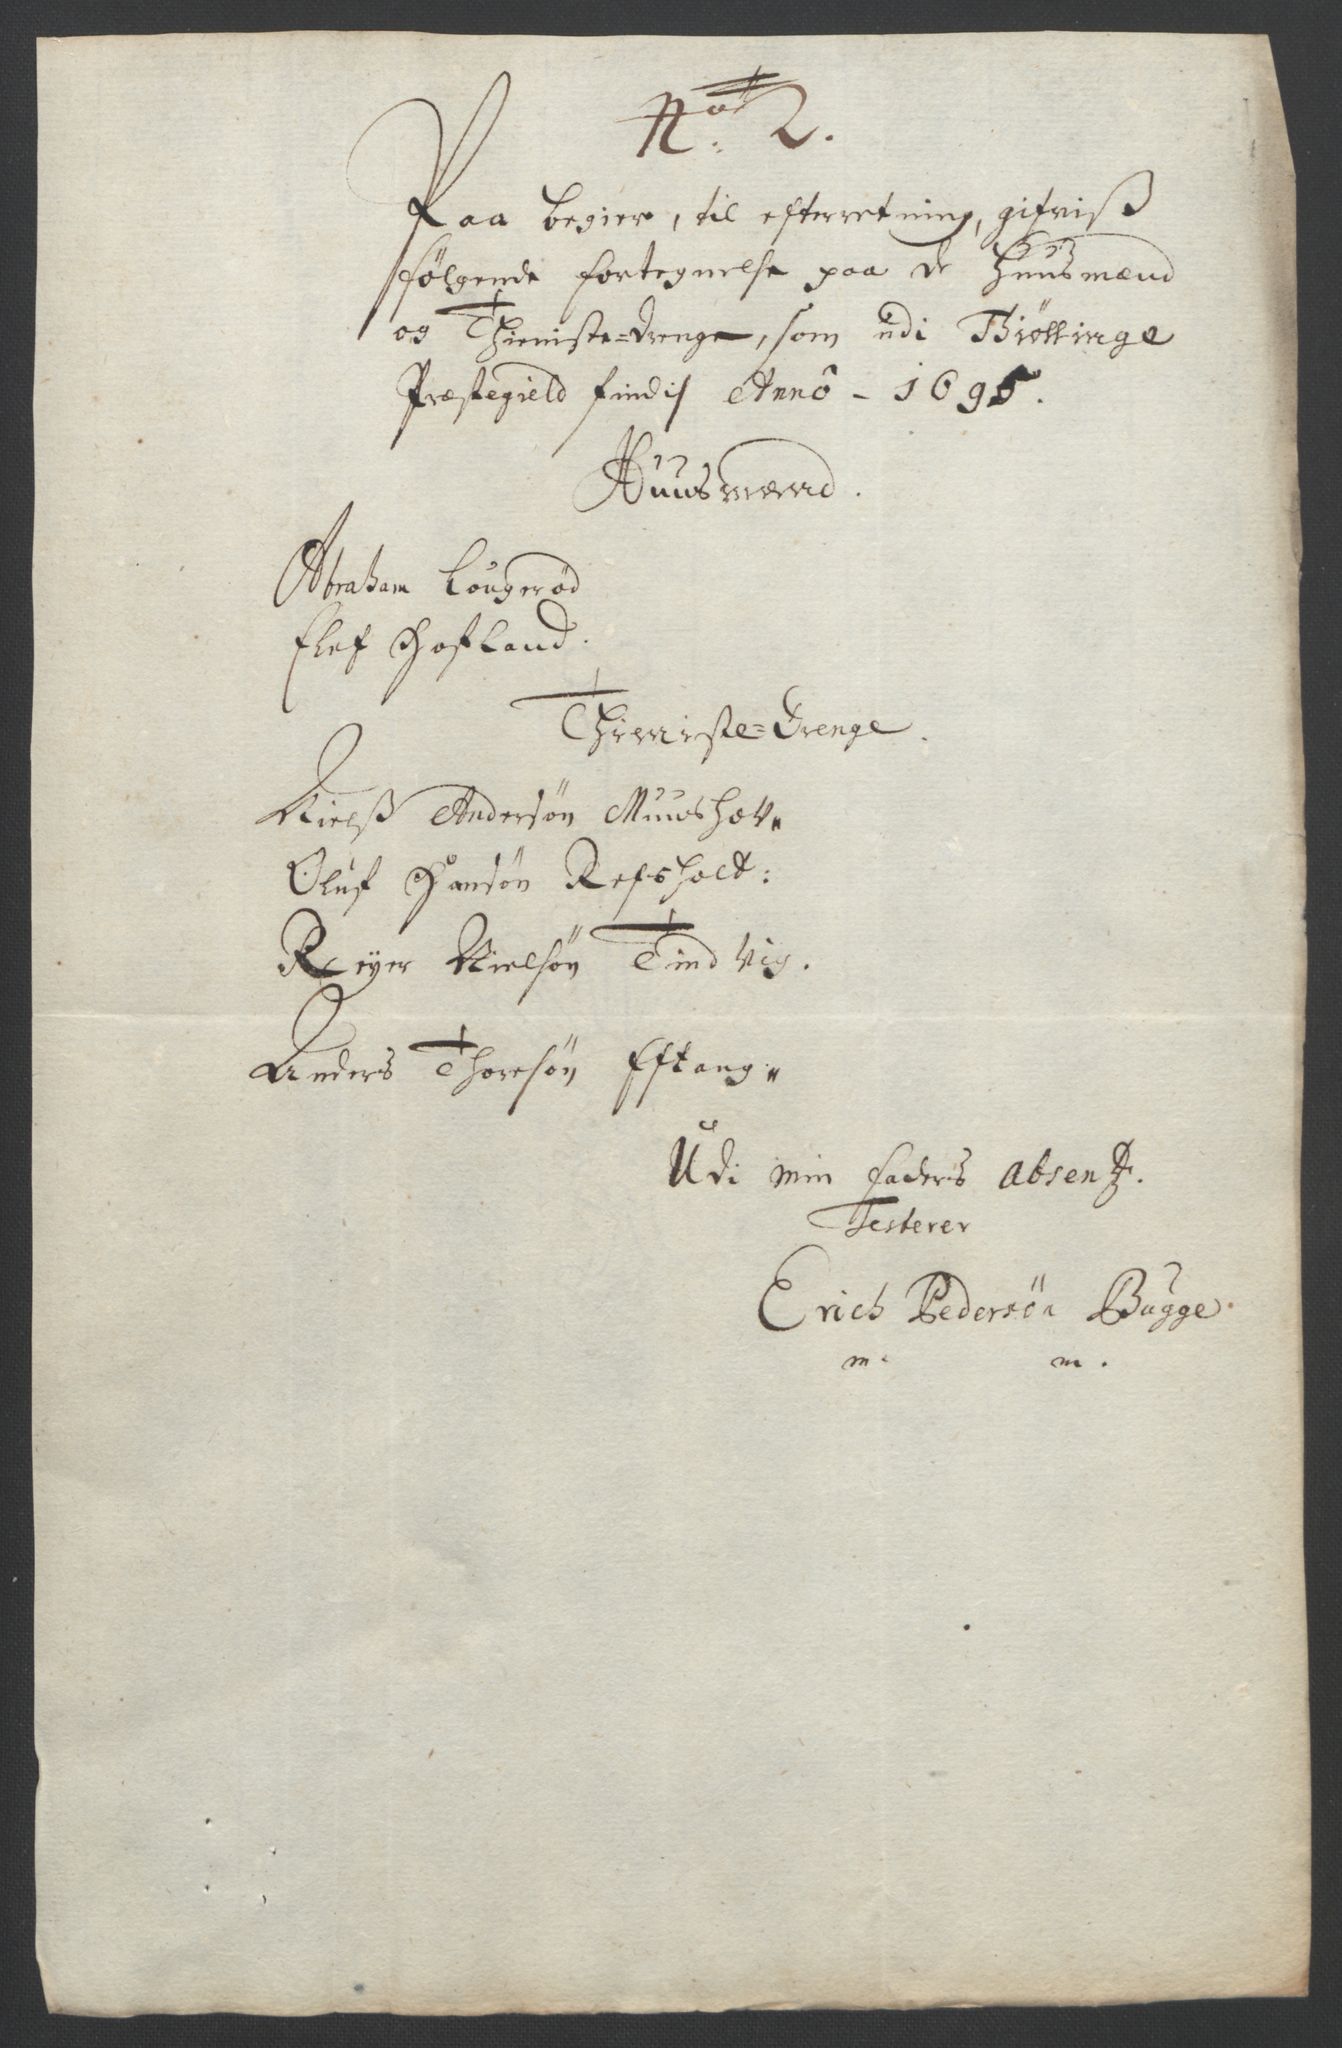 No. 2.
Paa begier, til efterretning, gifviß
følgende fortegnelse paa de Huusmænd
og Thieniste-drenge, som udi Tiøllinge
Præstegield findis Anno - 1695.
Huusmænd.
Abraham Lougerød
Elef Hofland.
Thieniste-Drenge.
Nielß Andersøn Muushov,,
Oluf Hansøn Refsholt:
Reyer Nielsøn Tindvig.
Anders Thoresøn Eftang,,
Udi min faders absentz.
Testerer
Erich Pedersøn Bugge.
m. m.